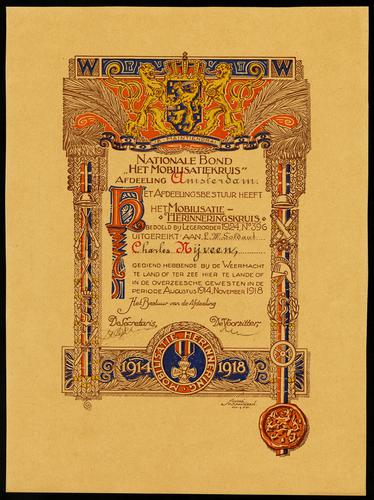 W W
JE MAINTIENDRAI
NATIONALE BOND
„HET MOBILISATIEKRUIS"
AFDEELING Amsterdam.
HET AFDEELINGSBESTUUR HEEFT
HET MOBILISATIE-
HERINNERINGSKRUIS
BEDOELD BIJ LEGERORDER 1924, No 396
UITGEREIKT AAN L.W. Soldaat
Charles Nijveen,
GEDIEND HEBBENDE BIJ DE WEERMACHT
TE LAND OF TER ZEE HIER TE LANDE OF
IN DE OVERZEESCHE GEWESTEN IN DE
PERIODE AUGUSTUS 1914, NOVEMBER 1918
Het Bestuur van de Afdeeling
De Secretaris, De Voorzitter,
1914 MOBILISATIE HERINNERING 1918